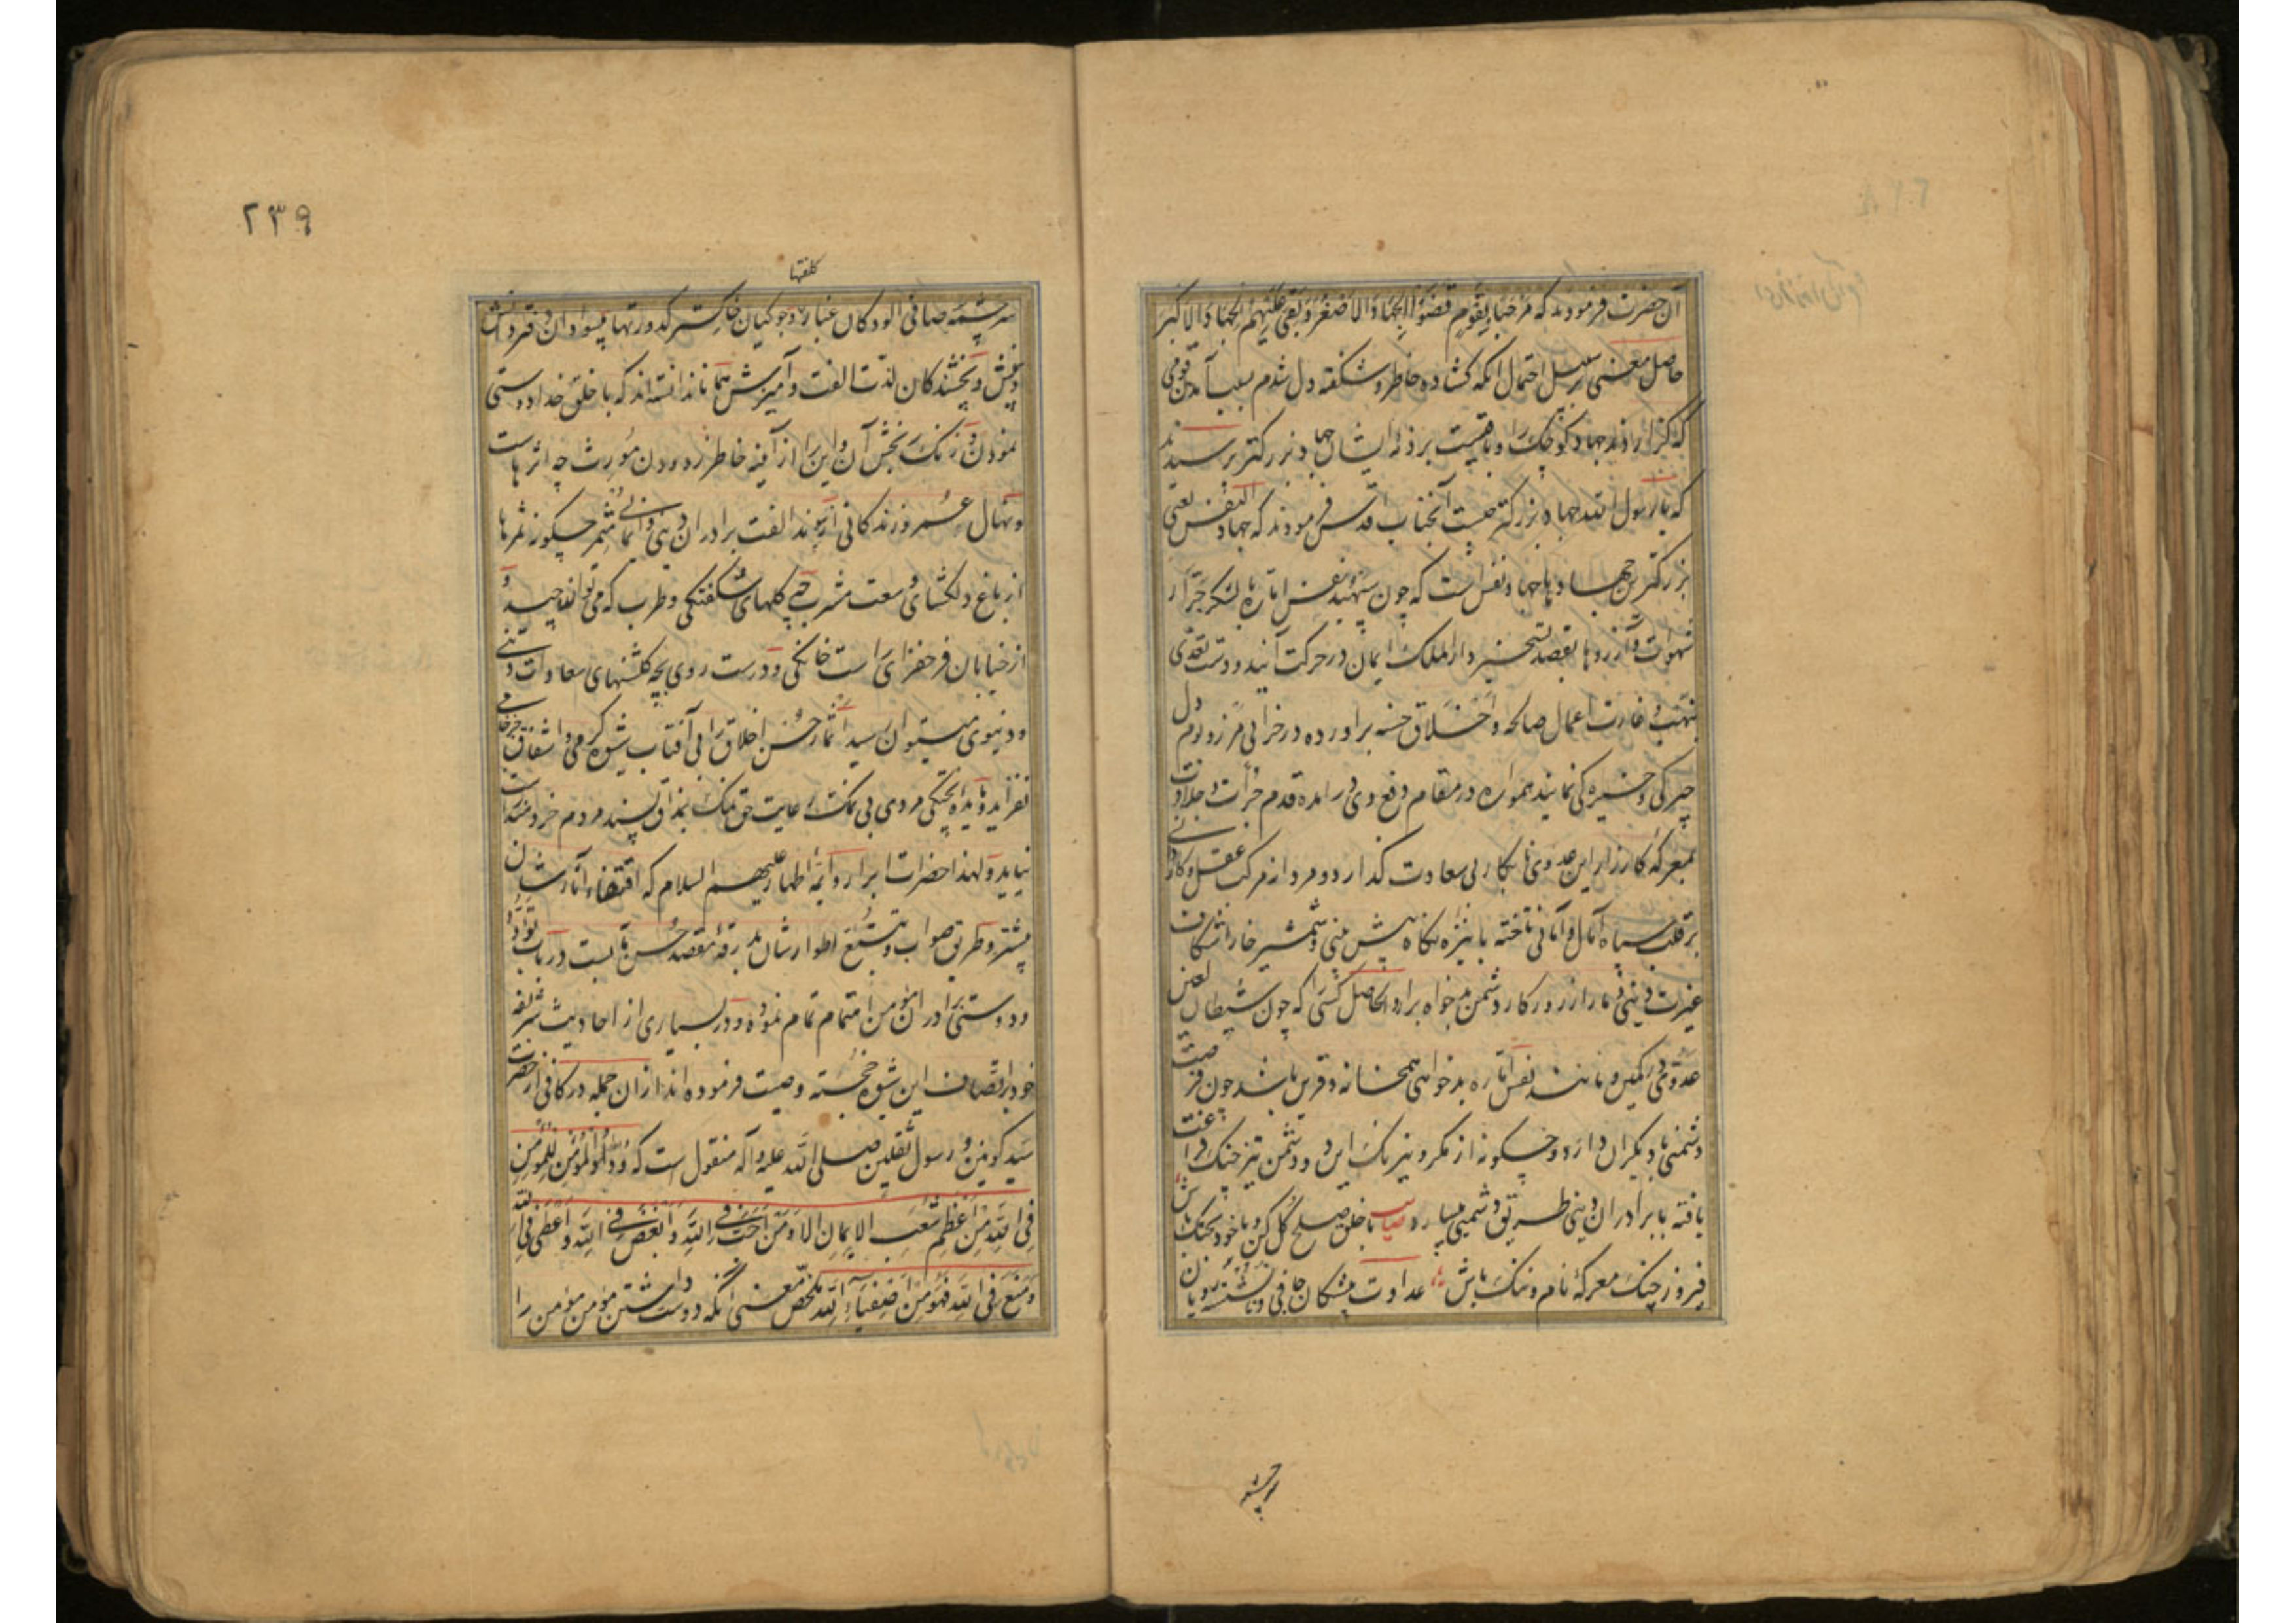 آن حضرت فرمودند که مرحبا بقوم قضوا الجهاد الاصغر و بقی علیهم الجهاد الاکبر
حاصل معنی بر سبیل احتمال انکه کشاده خاطر و شکفته دل شدم بسبب آمدن قومی
که گزاردند جهاد کوچک را و باقیست بر ذمهٔ ایشان جهاد بزرکتر پرسیدند
که یا رسول الله جهاد بزرکتر چیست آنجناب اقدس فرمودند که جهاد النفس یعنی
بزرکترین جهادها جهاد نفس است که چون سپهبد نفس اماره با لشکر جرار
شهوات و آرزوها بقصد تسخیر دارالملک ایمان در حرکت آیند و دست تعدی
بنهب و غارت اعمال صالحه و اخلاق حسنه براورده در خرابی مرز و بوم دل
چیرکی و خیره کی نمایند همواره در مقام دفع وی در امده قدم جرأت و جلادت
بمعرکهٔ کارزار این عدوی نابکار بی سعادت کذارد و مردانه مرکب عقل و کاردانی
بر قلب سپاه آمال و امانی تاخته با نیزه نکاه پیش بینی و شمشیر خاراشکاف
غیرت دینی دمار از روزکار دشمن بدخواه براد الحاصل کسی را که چون شیطان لعین
عدوی در کمین و مانند نفس اماره بدخواهی همخانه و قرین باشد چون فرصت
دشمنی با دیکران دارد و چکونه از مکر و نیرنک این دو دشمن تیز چنک فراغت
یافته با برادران دینی طریق دشمنی میسپارد صیاست با خلق صلح کل کن و با خود بجنک باش
فیروز جنک معرکهٔ نام و ننک باش عداوت پیشکان جافی و ناشسته رویان
سرچشمه
۲۳۹
کلفتها
سرچشمه صافی الودکان غبار و جوکیان خاکستر کدورتها بیسوادان دفتر دانش
و بینش و نچشندکان لذت الفت و آمیزش همانا ندانسته اند که با خلق خدا دوستی
نمودن و زنک رنجش آن و این را از آینه خاطر زدودن مورث چه اثرهاست
و نهال عمر و زندکانی از پیوند الفت برادران دینی و ایمانی مثمر چکونه ثمرها
از باغ دلکشای وسعت مشرب چه کلهای شکفتکی و طرب که می توانند چید و
از خیابان فرحفزای راست خانکی و درست روی بچه کلشنهای سعادات دینی
و دنیوی میتوان رسید اثمار حسن اخلاق را بی آفتاب شیوه کرمی و اشفاق جز خامی
نفزاید و مایده پختکی مردی بی نمک رعایت حق نمک بمذاق پسند مردم خردمند راست
نیاید و لهذا حضرات ابرار و ایمه اطهار علیهم السلام که اقتفاء آثارشان
پیشرو طریق صواب و تتبع اطوارشان بدرقهٔ مقصد حسن مآبست در باب تودد
و دوستی برادران مؤمن اهتمام تمام نموده و در بسیاری از احادیث شریفه
خود باتصاف این شیوه خجسته وصیت فرموده اند از ان جمله در کافی از حضرت
سید کونین و رسول ثقلین صلی الله علیه و آله منقول است که ود المؤمن للمؤمن
فی الله من اعظم شعب الایمان الا و من احب فی الله و ابغض فی الله و اعطی فی الله
و منع فی الله فهو من اصفیاء الله ملخص معنی انکه دوست داشتن مؤمن مؤمن را